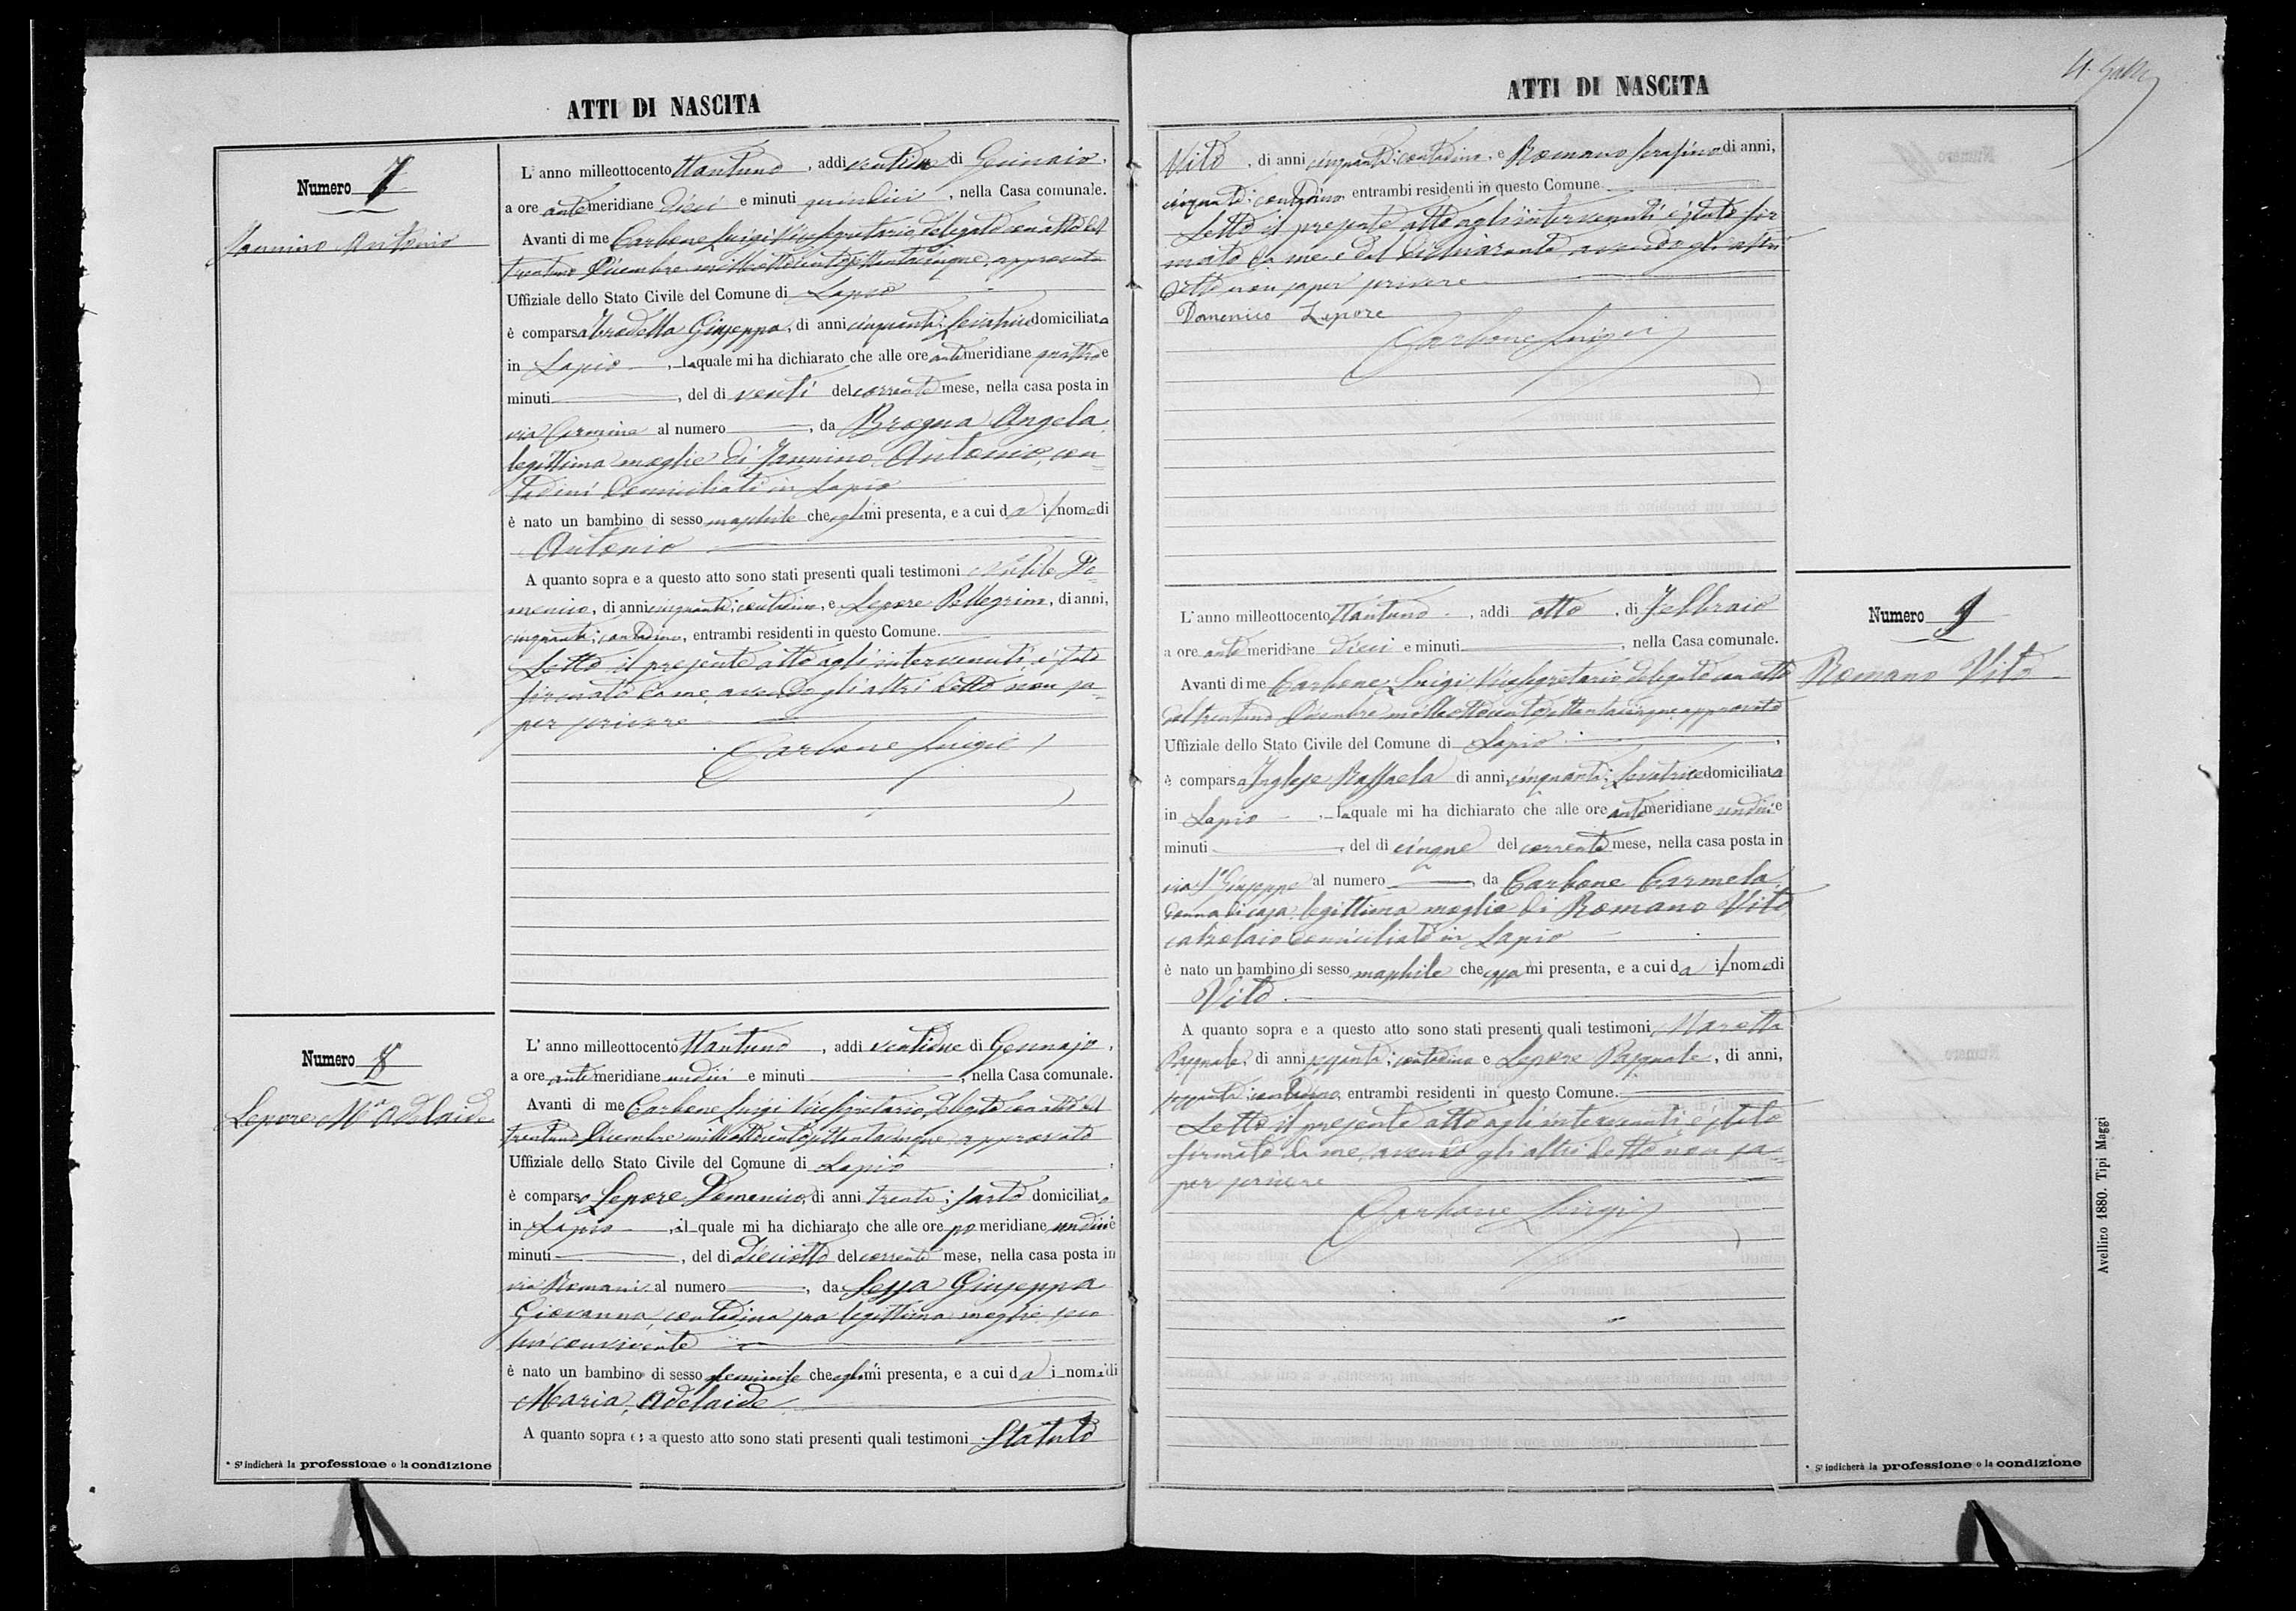 ATTI DI NASCITA
Numero 7
Iannino Antonio
L' anno milleottocento ttantuno, addi ventidue di Gennaio,
a ore antemeridiane dieci e minuti quindici, nella Casa comunale.
Avanti di me Carbone Luigi Vicesegretario delegato con atto del
trentuno Dicembre milleottocentosettantacinque, approvato
Uffiziale dello Stato Civile del Comune di Lapio
è comparsa Giuseppa, di anni cinquanta; levatrice domiciliata
in Lapio, la quale mi ha dichiarato che alle ore antemeridiane quattro e
minuti, del di venti del corrente mese, nella casa posta in
via Carmine al numero, da Brogna Angela,
legittima moglie di Iannino Antonio, con=
tadini domiciliati in Lapio
è nato un bambino di sesso maschile che egli mi presenta, e a cui da il nome di
Antonio
A quanto sopra e a questo atto sono stati presenti quali testimoni Do=
menico, di anni cinquanta; contadino, e Lepore Pellegrino, di anni,
cinquanta; contadino, entrambi residenti in questo Comune.
Letto il presente atto agli intervenuti, è stato
firmato da me, avendo gli altri detto non sa=
per scrivere
Carbone Luigi
Numero 8
Lepore Ma Adelaide
L' anno milleottocento ttantuno, addi ventidue di Gennajo,
a ore antemeridiane undici e minuti, nella Casa comunale.
Avanti di me Carbone Luigi Vicesegretario, delegato con atto del
trentuno Dicembre milleottocentosettantacinque approvato
Uffiziale dello Stato Civile del Comune di Lapio
è comparso Lepore Domenico, di anni trenta; sarto domiciliato
in Lapio, il quale mi ha dichiarato che alle ore pomeridiane undici e
minuti, del di dieciotto del corrente mese, nella casa posta in
via Romani al numero, da Sessa Giuseppa
Giovanna, contadina sua legittima moglie seco
lui convivente
è nato un bambino di sesso femminile che egli mi presenta, e a cui da i nomi di
Maria, Adelaide
A quanto sopra e a questo atto sono stati presenti quali testimoni Statuto
* Si indicherà la professione o la condizione
ATTI DI NASCITA
Vito, di anni cinquanta; contadino, e Romano Serafino di anni,
cinquanta; contadino entrambi residenti in questo Comune
Letto il presente atto agli intervenuti è stato fir
mato da me e dal dichiarante avendo gli altri
detto non saper scrivere
Domenico Lepore
Carbone Luigi
Numero 9
Romano Vito
L'anno milleottocento ttantuno, addi otto, di Febbraio
a ore antemeridiane dieci e minuti, nella Casa comunale.
Avanti di me Carbone Luigi Vicesegretario delegato con atto
del trentuno Dicembre milleottocentosettantacinque approvato
Uffiziale dello Stato Civile del Comune di Lapio
è comparsa Inglese Raffaela di anni, cinquanta; levatrice domiciliata
in Lapio, la quale mi ha dichiarato che alle ore antemeridiane undici e
minuti, del di cinque del corrente mese, nella casa posta in
via Sn Giuseppe al numero, da Carbone Carmela,
donna di casa legittima moglie di Romano Vito
calzolaio domiciliato in Lapio
è nato un bambino di sesso maschile che essa mi presenta, e a cui da il nome di
Vito
A quanto sopra e a questo atto sono stati presenti quali testimoni,
Pasquale, di anni sessanta; contadino e Lepore Pasquale, di anni,
sessanta; contadino, entrambi residenti in questo Comune.
Letto il presente atto agli intervenuti, è stato
firmato da me, avendo gli altri detto non sa=
per scrivere
Carbone Luigi
* Si indicherà la professione o la condizione
Avellino 1880. Tipi Maggi